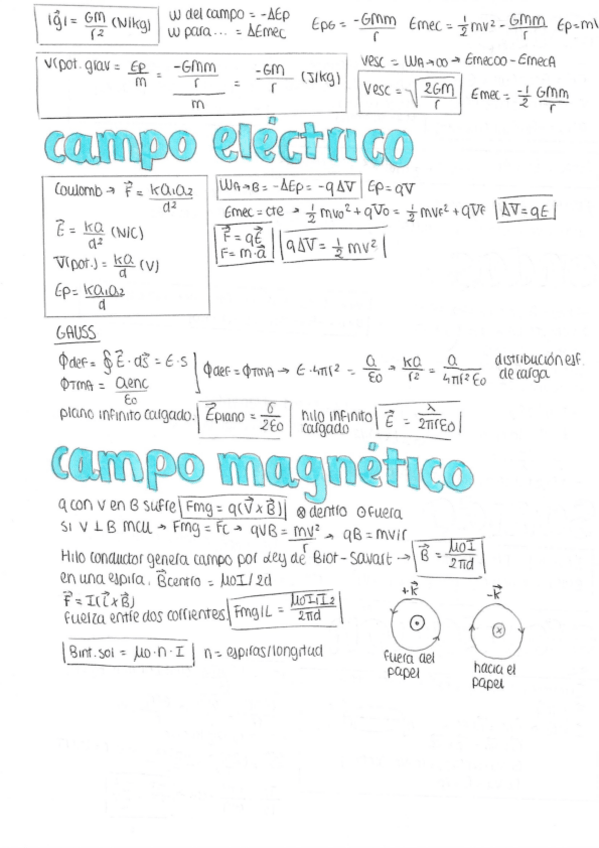 |g⃗| = GM/r² (N/kg)
W del campo = -ΔEp
W para... = ΔEmec
EpG = -GMm/r Emec = 1/2 mv² - GMm/r Ep=m
V(pot. grav = Ep/m = (-GMm/r)/m = -GM/r (J/kg)
Vesc = WA→∞ → Emec∞ - EmecA
Vesc = √(2GM/r) Emec = -1/2 GMm/r
campo eléctrico
Coulomb → F⃗ = KQ1Q2/d²
E⃗ = KQ/d² (N/C)
V(pot.) = KQ/d (V)
Ep = KQ1Q2/d
WA→B = -ΔEp = -qΔV Ep = qV
Emec = cte → 1/2 mv0² + qV0 = 1/2 mvF² + qVF ΔV = qE
F⃗ = qE⃗
F = m·a⃗
qΔV = 1/2 mv²
GAUSS
Φdef = ∮E⃗·dS⃗ = E·S
ΦTMA = Qenc/ε0
Φdef = ΦTMA → E·4πr² = Q/ε0 → KQ/r² = Q/4πr²ε0 distribución esf. de carga
plano infinito cargado. E⃗plano = σ/2ε0 hilo infinito cargado E⃗ = λ/2πrε0
campo magnético
q con v en B sufre Fmg = q(V⃗xB⃗) ⊗ dentro ⊙ fuera
Si V ⊥ B MCU → Fmg = Fc → qVB = mv²/r → qB = mv/r
Hilo conductor genera campo por Ley de Biot-Savart → B⃗ = μ0I/2πd
en una espira. B⃗centro = μ0I/2d
F⃗ = I(l⃗xB⃗)
fuerza entre dos corrientes. Fmg/L = μ0I1I2/2πd
Bint.sol = μ0·n·I n = espiras/longitud
+K⃗
fuera del
papel
-K⃗
hacia el
papel